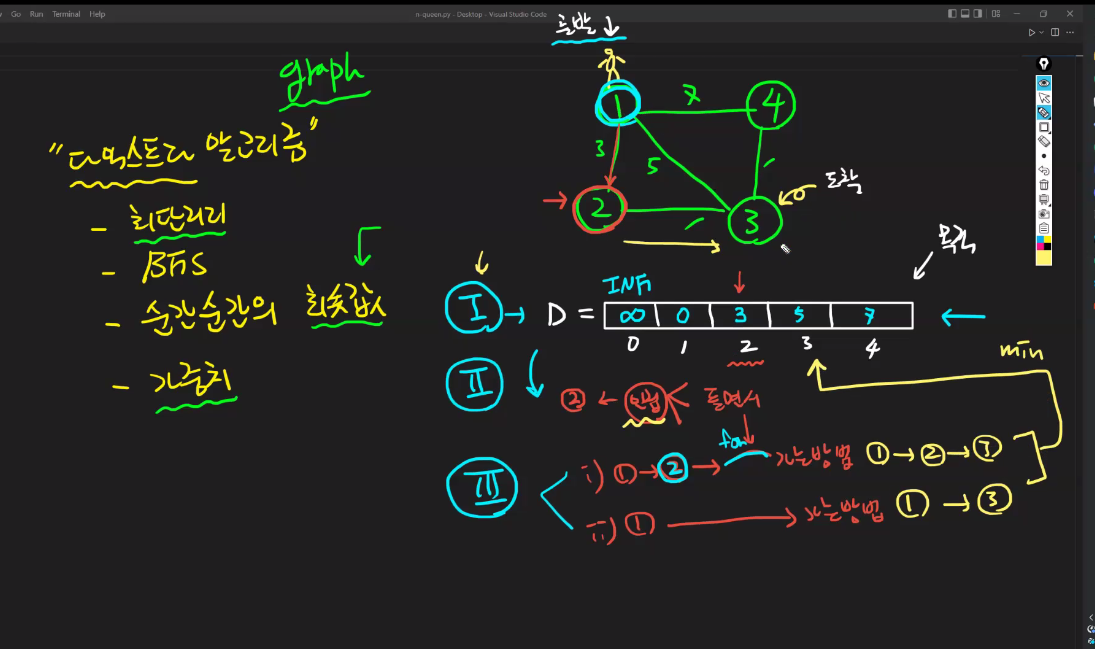 Go Run Terminal Help
n-queen.py - Desktop - Visual Studio Code
출발 ↓
graph
"다익스트라 알고리즘"
- 최단거리
- BFS
- 순간순간의 최솟값
- 가중치
1 7 4
3 5 1
2 1 3
도착
목적
INF
I → D = ∞ 0 3 5 7
0 1 2 3 4
II
min
② ← 인접 돌면서
for
III
i) ① → ② → 가는방법 ① → ② → ③
ii) ① → 가는방법 ① → ③